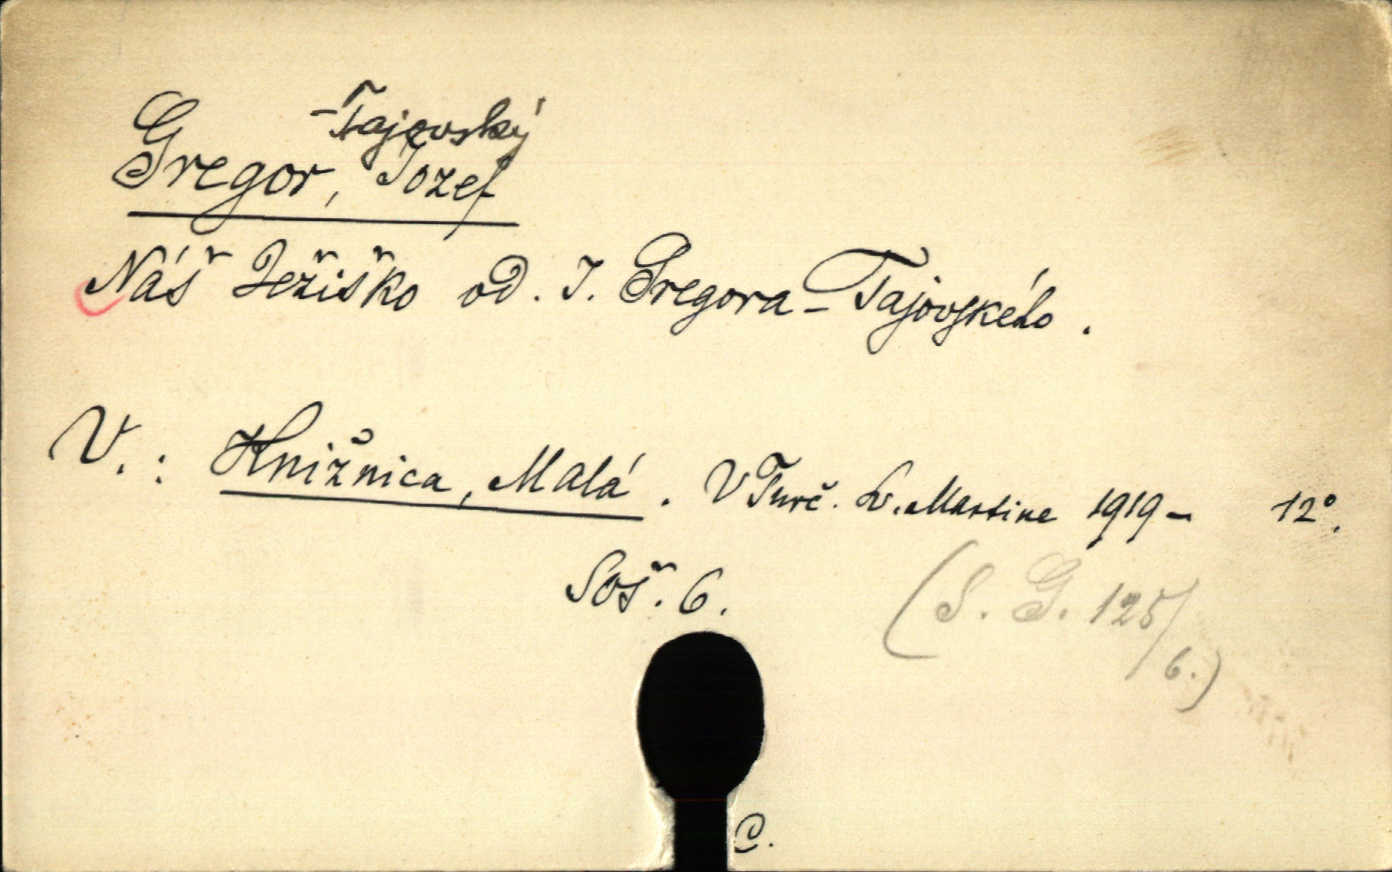 Gregor-Tajovský, Jozef
Náš Ježiško od. J. Gregora-Tajovského.
V.: Knižnica, Malá. V Turč. Sv. Martine 1919- 12°.
Soš. 6.
(S. G. 125/6.)
C.